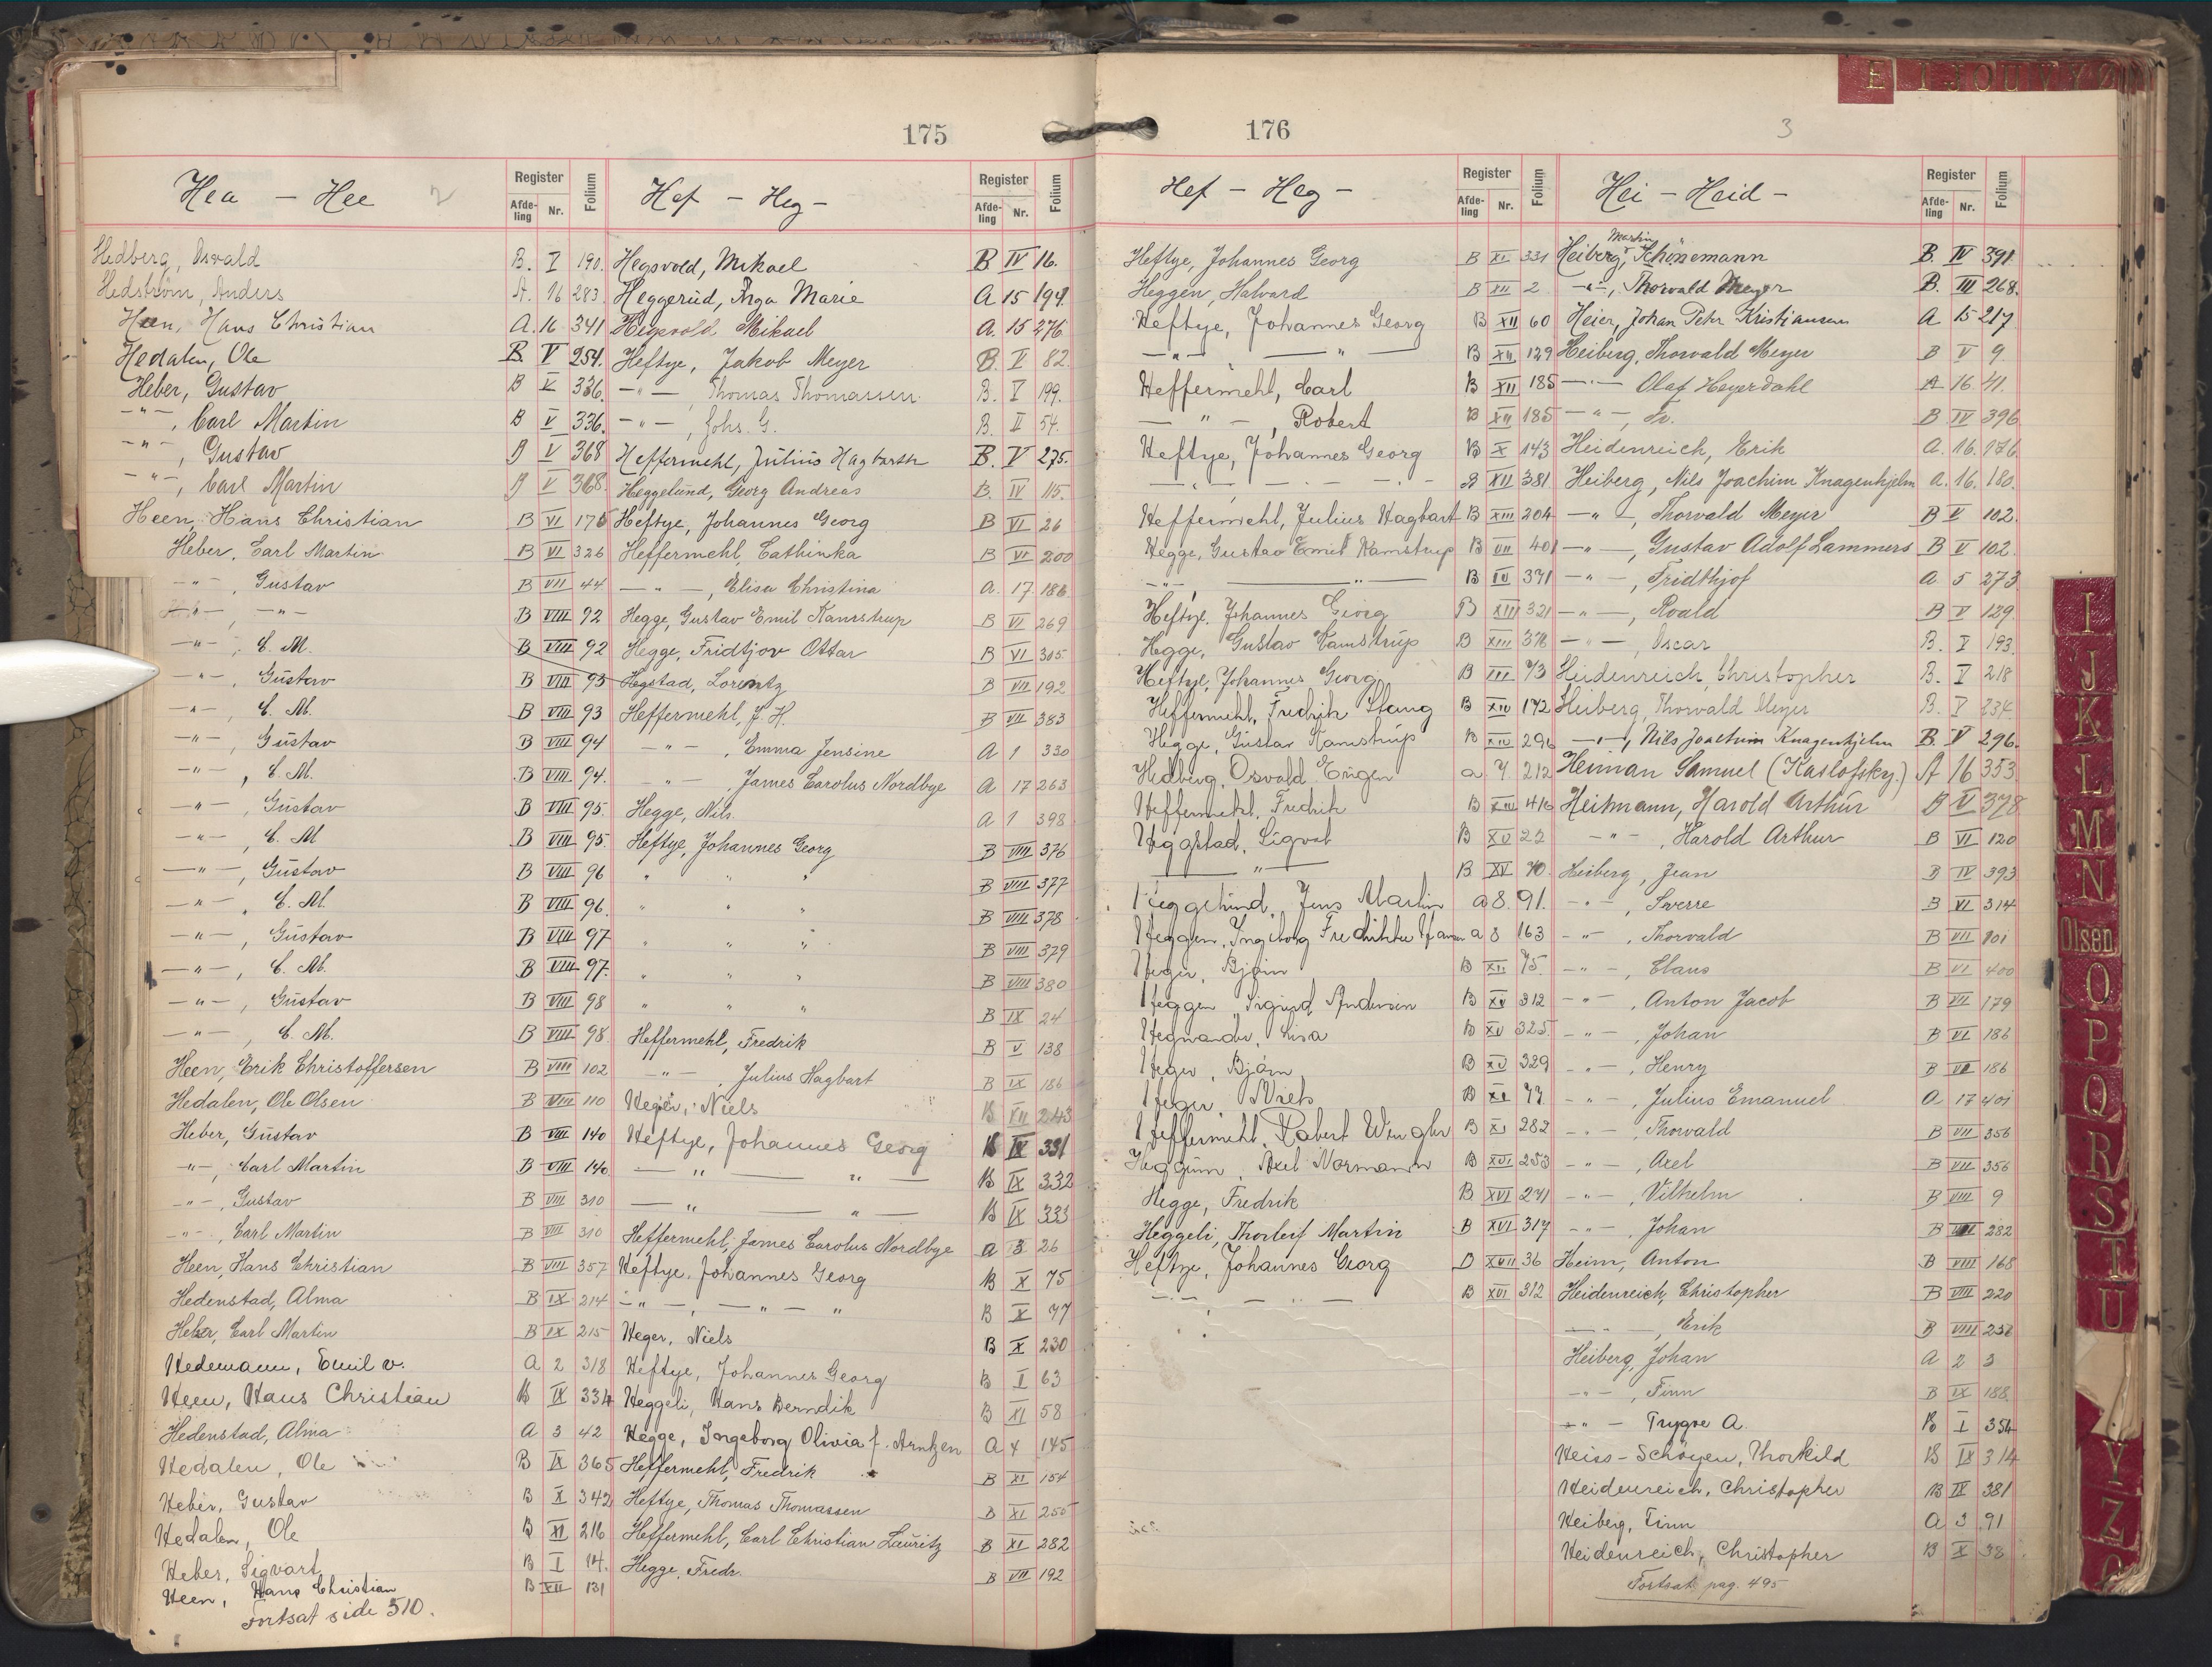 175
Hea - Hee 2
Register Folium
Afdeling Nr.
Hedberg, Osvald B. I 190.
Hedström, Anders A. 16 283.
Heen, Hans Christian A. 16 341
Hedalen, Ole B. V 254.
Heber, Gustav B V 336.
-"-, Carl Martin B V 336.
-"-, Gustav B V 368
-"-, Carl Martin B V 368.
Heen, Hans Christian B VI 175
Heber, Carl Martin B VI 326
-"-, Gustav B VII 44
-"-, -"- B VIII 92
-"-, C. M. B VIII 92
-"-, Gustav B VIII 93
-"-, C. M. B VIII 93
-"-, Gustav B VIII 94
-"-, C. M. B VIII 94.
-"-, Gustav B VIII 95.
-"-, C. M B VIII 95.
-"-, Gustav B VIII 96
-"-, C. M. B VIII 96.
-"-, Gustav B VIII 97
-"-, C. M. B VIII 97.
-"-, Gustav B VIII 98
-"-, C. M. B VIII 98.
Heen, Erik Christoffersen B VIII 102
Hedalen, Ole Olsen B VIII 110
Heber, Gustav B VIII 140
-"-, Carl Martin B VIII 140.
-"-, Gustav B VIII 310
-"-, Carl Martin B VIII 310
Heen, Hans Christian B VIII 357
Hedenstad, Alma B IX 214
Heber, Carl Martin B IX 215
Hedemann, Emil v. A 2 318
Heen, Hans Christian B IX 334
Hedenstad, Alma A 3 42
Hedalen, Ole B IX 365
Heber, Gustav B X 342
Hedalen, Ole B XI 216
Heber, Sigvart B I 14.
Heen, Hans Christian B XII 131
Fortsat side 510.
Hef - Heg -
Register Folium
Afdeling Nr.
Hegsvold, Mikael B IV 16.
Heggerud, Inga Marie A 15 194.
Hegsvold Mikael A. 15 276
Heftye, Jakob Meyer B. V 82.
-"-, Thomas Thomassen B. V 199.
-"-, Johs. G. B. II 54.
Heffermehl, Julius Hagbarth B. V 275.
Heggelund, Georg Andreas B. IV 115.
Heftye, Johannes Georg B VI 26
Heffermehl, Cathinka B VI 200
-"-, Elisa Christina A. 17 186.
Hegge, Gustav Emil Kamstrup B VI 269
Hegge, Fridtjov Ottar B VI 305.
Hegstad, Lorentz B VII 192
Heffermehl, J. H. B VII 383
-"-, Emma Jensine A 1 330
-"-, James Carolus Nordbye A 17 263
Hegge, Nils. A 1 398
Heftye, Johannes Georg B VIII 376
" " " B VIII 377
" " " B VIII 378
" " " B VIII 379
" " " B VIII 380
" " " B IX 24
Heffermehl, Fredrik B V 138
-"-, Julius Hagbart B IX 186
Heger, Niels B XII 243
Heftye, Johannes Georg B IX 331
-"- -"- B IX 332
-"- -"- B IX 333
Heffermehl, James Carolus Nordbye a 3 26
Heftye, Johannes Georg B X 75
-"-, -"- " B X 77
Heger, Niels B X 230
Heftye, Johannes Georg B I 63
Heggeli, Hans Berndik B XI 58
Hegge, Ingeborg Olivia f. Arntzen A 4 145
Heffermehl, Fredrik B XI 154
Heftye, Thomas Thomassen B XI 250
Heffermehl, Carl Christian Lauritz B XI 282
Hegge, Fredr. B VIII 192
176
3
Hef - Heg -
Register Folium
Afdeling Nr.
Heftye, Johannes Georg B XI 331
Heggen, Halvard B XII 2
Heftye, Johannes Georg B XII 60
-"- -"- B XII 129
Heffermehl, Carl B XII 185
-"-, Robert B XII 185
Heftye, Johannes Georg B X 143
-"- B XII 381
Heffermehl, Julius Hagbart B XIII 204
Hegge, Gustav Emil Kamstrup B VII 401
-"- -"- B IV 371
Heftye, Johannes Georg B XIII 321
Hegge, Gustav Kamstrup B XIII 376
Heftye, Johannes Georg B III 73
Heffermehl, Fredrik Stang B XIV 172
Hegge, Gustav Kamstrup B XIV 296
Hedberg, Osvald Eugen a 7 212
Heffermehl, Fredrik B XIII 416
Heggstad, Sigvat B XV 22
-"- B XV 40.
Heggelund, Jens Martin a 8. 91.
Heggen, Ingeborg Fredrikke a 8 163
Heger, Bjørn B XII 75.
Heggen, Sigurd Andersen B XV 312
Hegnander, Lisa B XV 325
Heger, Bjørn B XV 329
Heger, B XI 77
Heffermehl, Robert B XI 282
Heggum, Axel Normann B XVI 253
Hegge, Fredrik B XVI 271
Heggeli, Thorleif Martin B XVI 317
Heftye, Johannes Georg B XVII 36
B XVI 312
Hei - Heid -
Register Folium
Afdeling Nr.
Martin
Heiberg, Schönemann B. IV 391.
-"-, Thorvald Meyer B. III 268.
Heier, Johan Peter Kristiansen A 15 217
Heiberg, Thorvald Meyer B V 9.
-"- Olaf Heyerdahl A 16 41.
-"-, Fr. B IV 396
Heidenreich, Erik A. 16. 176.
Heiberg, Nils Joachim Knagenhjelm A. 16. 180.
-"-, Thorvald Meyer B V 102.
-"-, Gustav Adolf Lammers B V 102.
-"-, Fridthjof A 5 273
-"-, Roald B V 129.
-"-, Oscar B. I 193.
Heidenreich, Christopher B. I 218
Heiberg, Thorvald Meyer B. V 234.
-"-, Nils Joachim Knagenhjelm B. V 296.
Heiman Samuel (Kaslofsky.) A 16 353
Heitmann, Harold Arthur B V 378
-"-, Harold Arthur B VI 120
Heiberg, Jean B IV 393
-"-, Sverre B VI 314
-"-, Thorvald B VII 101
-"-, Claus B VI 400
-"-, Anton Jacob B VII 179
-"-, Johan B VI 186
-"-, Henry B VI 186
-"-, Julius Emanuel A 17 401
-"-, Thorvald B VII 356
-"-, Axel B VII 356
-"-, Vilhelm B VIII 9
-"-, Johan B VII 282
Heim, Anton B VIII 168
Heidenreich, Christopher B VIII 220
-"-, Erik B VIII 256
Heiberg, Johan A 2 3
-"-, Finn B IX 188.
-"- Trygve A. B I 354
Heiss-Schøyen, Thorkild B IX 314
Heidenreich, Christopher B IX 381
Heiberg, Finn a 3 91
Heidenreich, Christopher B X 38
Fortsat pag. 495
E I J O U V Y Ø
I
J
K
L
M
N
Olsen
O
P
Q
R
S
T
U
V
Y
Z